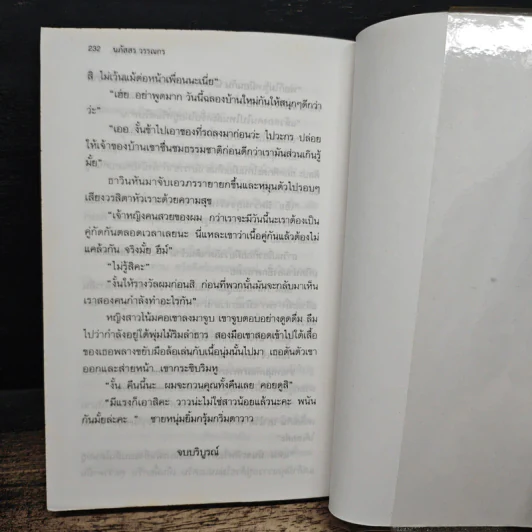 232 นภัสสร วรรณกร
สิ ไม่เว้นแม้ต่อหน้าเพื่อนนะเนี่ย"
"เฮ้ย อย่าพูดมาก วันนี้ฉลองบ้านใหม่กันให้สนุกๆดีกว่า
ว่ะ"
"เออ งั้นข้าไปเอาของที่รถลงมาก่อนว่ะ ไปวะกร ปล่อย
ให้เจ้าของบ้านเขาชื่นชมธรรมชาติก่อนดีกว่าเรามันส่วนเกินรู้
มั้ย"
ธาวินหันมาจับเอวภรรยายกขึ้นและหมุนตัวไปรอบๆ
เสียงวรสิตาหัวเราะด้วยความสุข
"เจ้าหญิงคนสวยของผม กว่าเราจะมีวันนี้นะเราต้องเป็น
คู่กัดกันตลอดเวลาเลยนะ นี่แหละเขาว่าเนื้อคู่กันแล้วต้องไม่
แคล้วกัน จริงมั้ย ฮึม์"
"ไม่รู้สิคะ"
"งั้นให้รางวัลผมก่อนสิ ก่อนที่พวกนั้นมันจะกลับมาเห็น
เราสองคนกำลังทำอะไรกัน"
หญิงสาวโน้มคอเขาลงมาจูบ เขาจูบตอบอย่างดูดดื่ม ลืม
ไปว่ากำลังอยู่ใต้พุ่มไม้ริมลำธาร สองมือเขาสอดเข้าไปใต้เสื้อ
ของเธอพลางขยับมือล้อเล่นกับเนื้อนุ่มนั้นไปมา เธอดันตัวเขา
ออกและส่ายหน้า เขากระซิบริมหู
"งั้น คืนนี้นะ ผมจะกวนคุณทั้งคืนเลย คอยดูสิ"
"มีแรงก็เอาสิคะ วาวน่ะไม่ใช่สาวน้อยแล้วนะคะ พนัน
กันมั้ยล่ะคะ " ชายหนุ่มยิ้มกรุ้มกริ่มตาวาว
จบบริบูรณ์